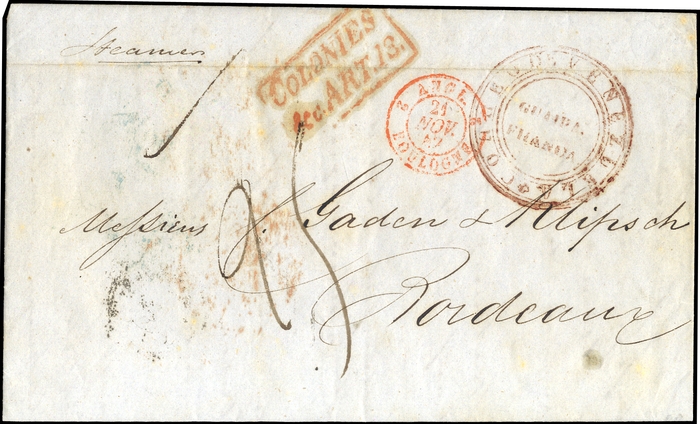 Steamer
COLONIES
&c. ART. 13.
2 ANGL. 2
21
NOV.
47
BOULOGNE
CORREO DE VENEZUELA
GUAIRA
FRANCA
Messieurs J. Gaden & Klipsch
Bordeaux